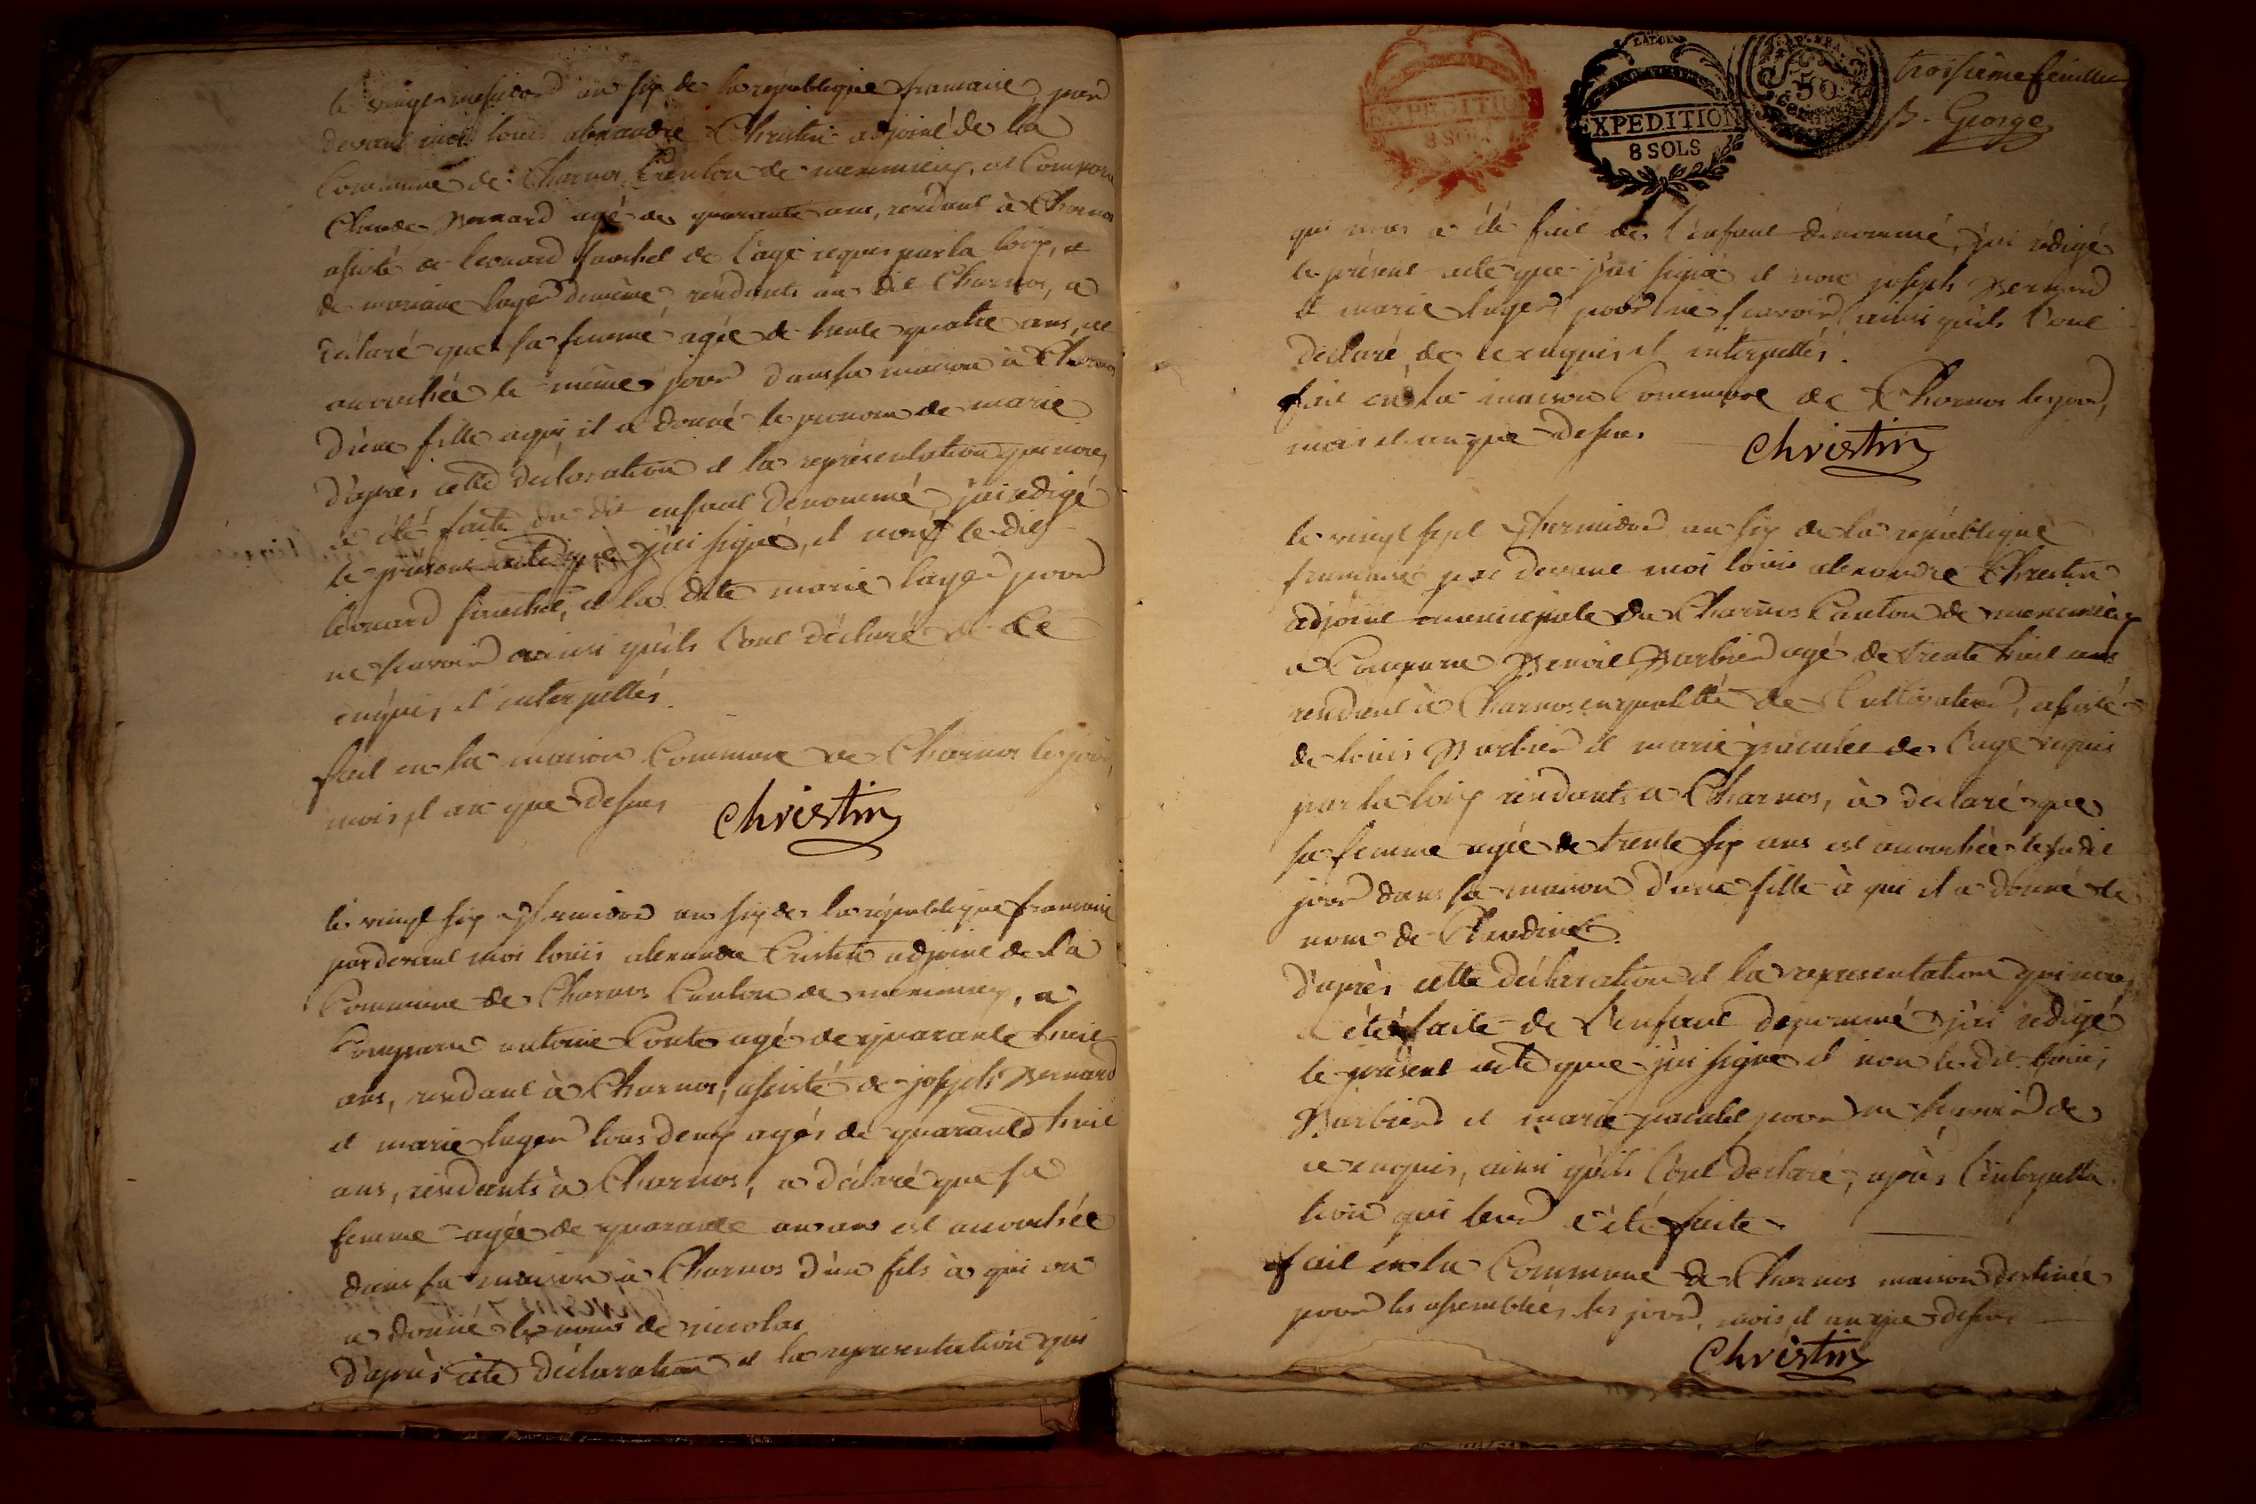 le vingt messidor an six de la république francaise, par
devant moi louis alexandre Christin adjoint de la
Commune de Charnos Canton de meximieux, est Comparu
Claude Bernard agé de quarante ans, residant à Charnos
assisté de leonard de l'age requis par la loix, et
de mariane layer demême residants au dit Charnos, a
déclaré que sa femme agée de trente quatre ans, est
accouchée le même jour dans sa maison à Charnos
d'une fille a qui il a donné le prenom de marie
d'après cette déclaration et la représentation qui nous
a été faite du dit enfant denommé, j'ai redigé
le présent acte que j'ai signé, et non le dit
leonard et la dite marie layer pour
ne scavoir ainsi qu'ils l'ont déclaré de ce
enquis et interpellés.
fait en la maison Commune de Charnos les jour,
mois et an que dessus
Christin
le vingt six thermidor an six de la république francaise
pardevant moi louis alexandre Cristin adjoint de la
Commune de Charnos Canton de meximieux, a
Comparu antoine Conte agé de quarante huit
ans, residant à Charnos, assisté de joseph Bernard
et marie luger tous deux agés de quarante huit
ans, residants à Charnos, a déclaré que sa
femme agée de quarante un ans est accouchée
dans sa maison à Charnos d'un fils à qui on
a donné le nom de nicolas
d'après cette déclaration et la representation qui
troisième feuillet
B. George
EXPEDITION
8 SOLS
EXPEDITION
8 SOLS
50
qui nous a été fait de l'enfant dénommé, j'ai rédigé
le présent acte que j'ai signé et non joseph Bernard
et marie luger pour ne scavoir ainsi qu'ils l'ont
déclaré, de ce enquis et interpellés.
fait en la maison Commune de Charnos les jour,
mois et an que dessus
Christin
le vingt sept thermidor an six de la république
francaise par devant moi louis alexandre Christin
adjoint municipale de Charnos Canton de meximieux
a Comparu Benoit Barbier agé de trente huit ans
residant à Charnos en qualité de Cultivateur, assisté
de louis Barbier et marie de l'age requis
par la loix residants a Charnos, à déclaré que
sa femme agée de trente six ans est accouchée le susdit
jour dans sa maison d'une fille à qui il a donné le
nom de Claudine.
d'après cette déclaration et la representation qui nous
a été faite de l'enfant denommé j'ai redigé
le présent acte que j'ai signé et non le dit louis
Barbier et marie pour ne scavoir de
ce enquis, ainsi qu'ils l'ont déclaré, après l'interpella
tion qui leur a été faite.
fait en la Commune de Charnos maison destinée
pour les assemblées, les jour, mois et an que dessus
Christin